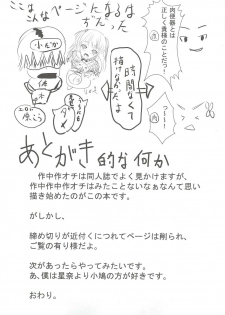 ここは
こんなページになるは
ずだった
肉便器とは
正しく貴様の
ことだっ!
時間なくて
描けなかったよ
つーーー!
あとがき的な何か
作中作オチは同人誌でよく見かけますが、
作中作中作オチはみたことないなぁなんて思い
描き始めたのがこの本です。
がしかし、
締め切りが近付くにつれてページは削られ、
ご覧の有り様だよ。
次があったらやってみたいです。
あ、僕は星奈より小鳩の方が好きです。
おわり。